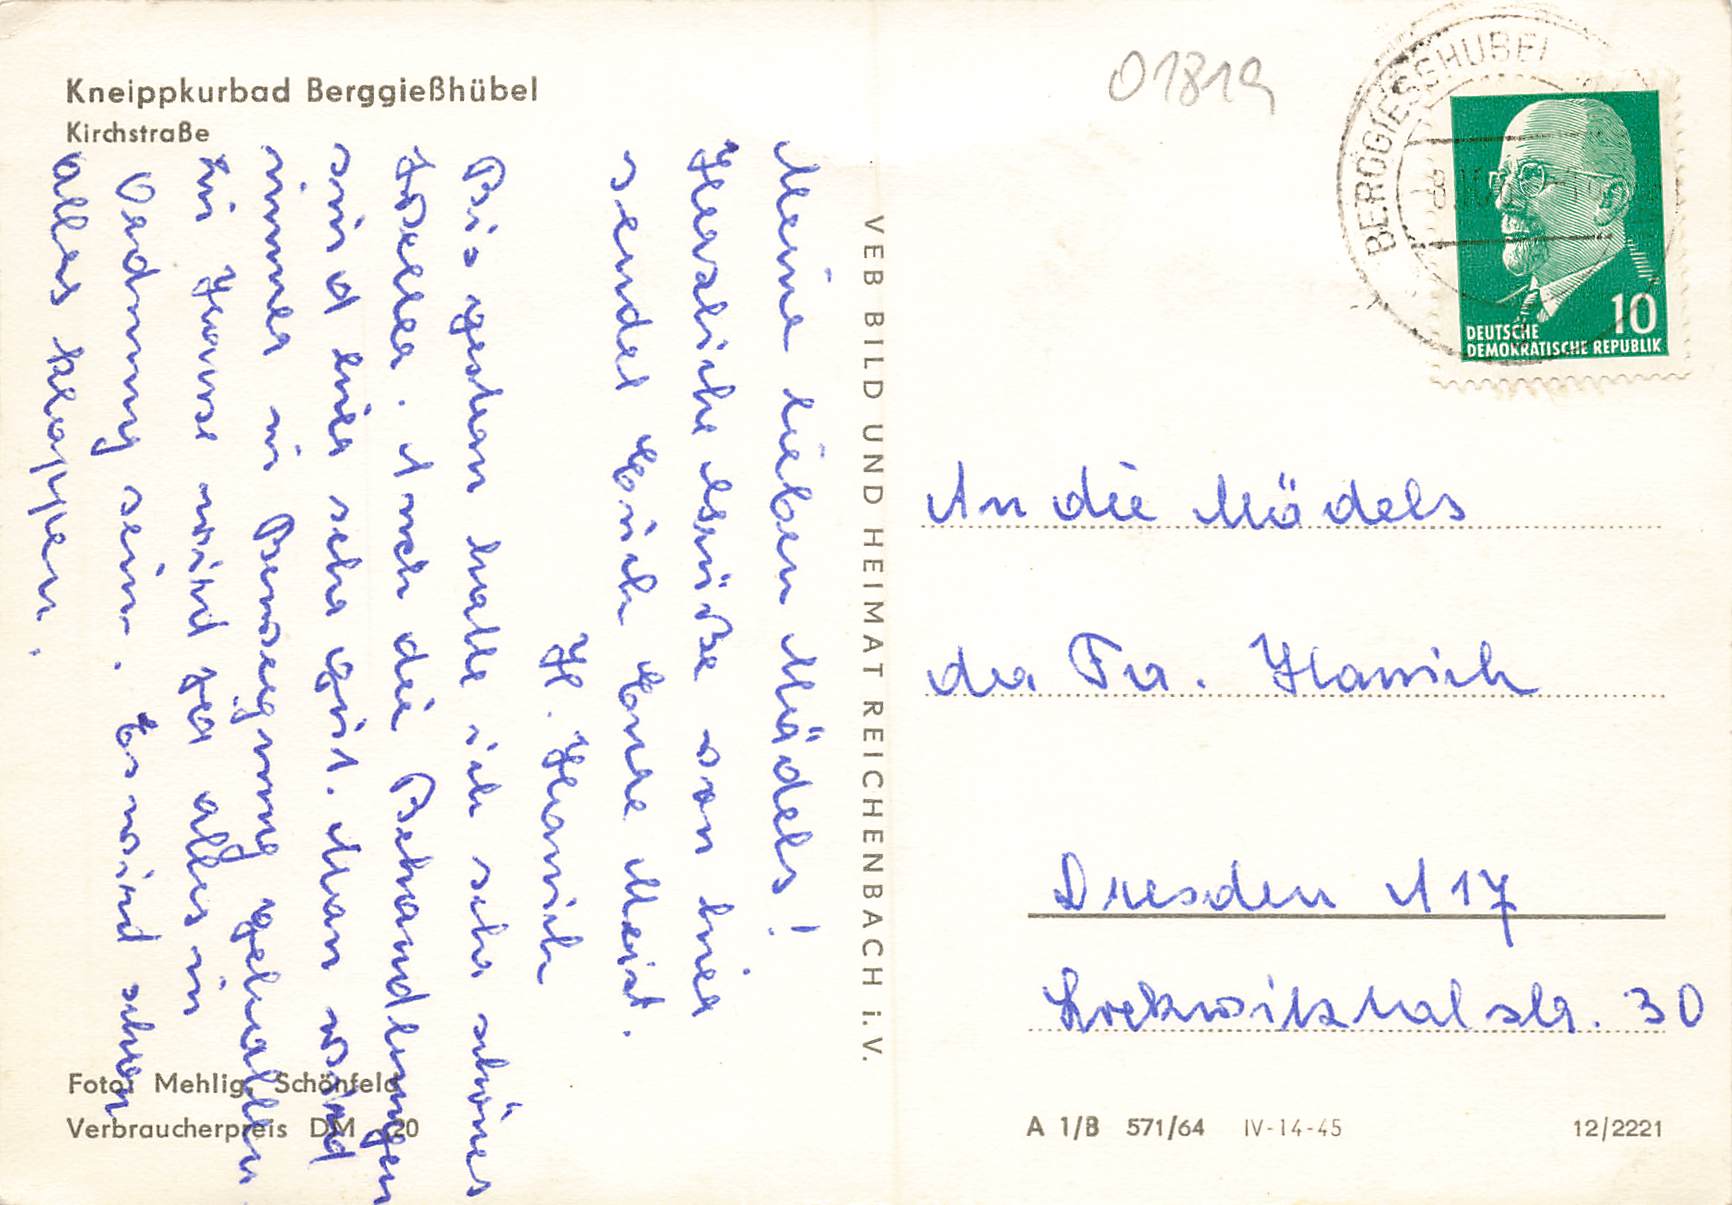 Kneippkurbad Berggießhübel
Kirchstraße
Meine lieben Mädels!
Herzliche Grüße von hier
sendet Euch Eure Meist.
H. Hanich
Bis gestern hatte ich sehr schönes
Wetter. Auch die Behandlungen
sind hier sehr gut. Man wird
immer in Bewegung gehalten.
Zu Hause wird ja alles in
Ordnung sein. Es wird schon
alles klappen.
Foto: Mehlig, Schönfeld
Verbraucherpreis DM -,20
VEB BILD UND HEIMAT REICHENBACH i. V.
01819
BERGGIESSHÜBEL
10
DEUTSCHE
DEMOKRATISCHE REPUBLIK
An die Mädels
der Fa. Hanich
Dresden A 17
Lockwitztalstr. 30
A 1/B 571/64 IV-14-45 12/2221